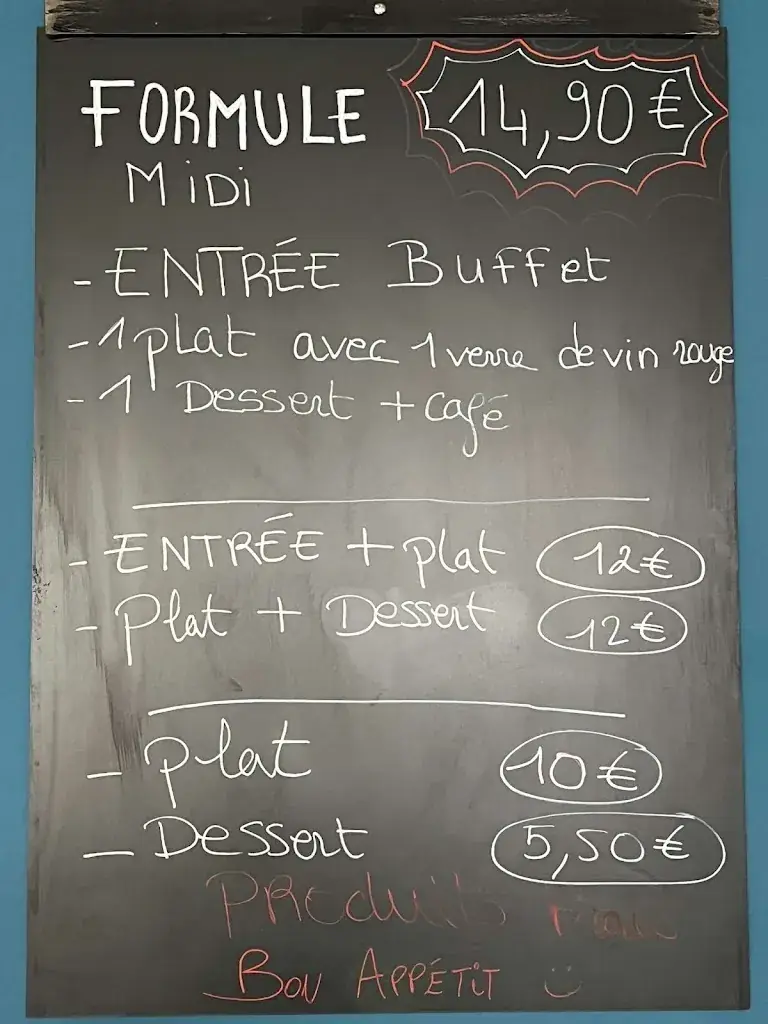 FORMULE 14,90€
MiDi
- ENTRÉE Buffet
- 1 plat avec 1 verre de vin rouge
- 1 Dessert + café
- ENTRÉE + plat 12€
- Plat + Dessert 12€
- plat 10€
- Dessert 5,50€
PRoduits
BON APPÉTIT